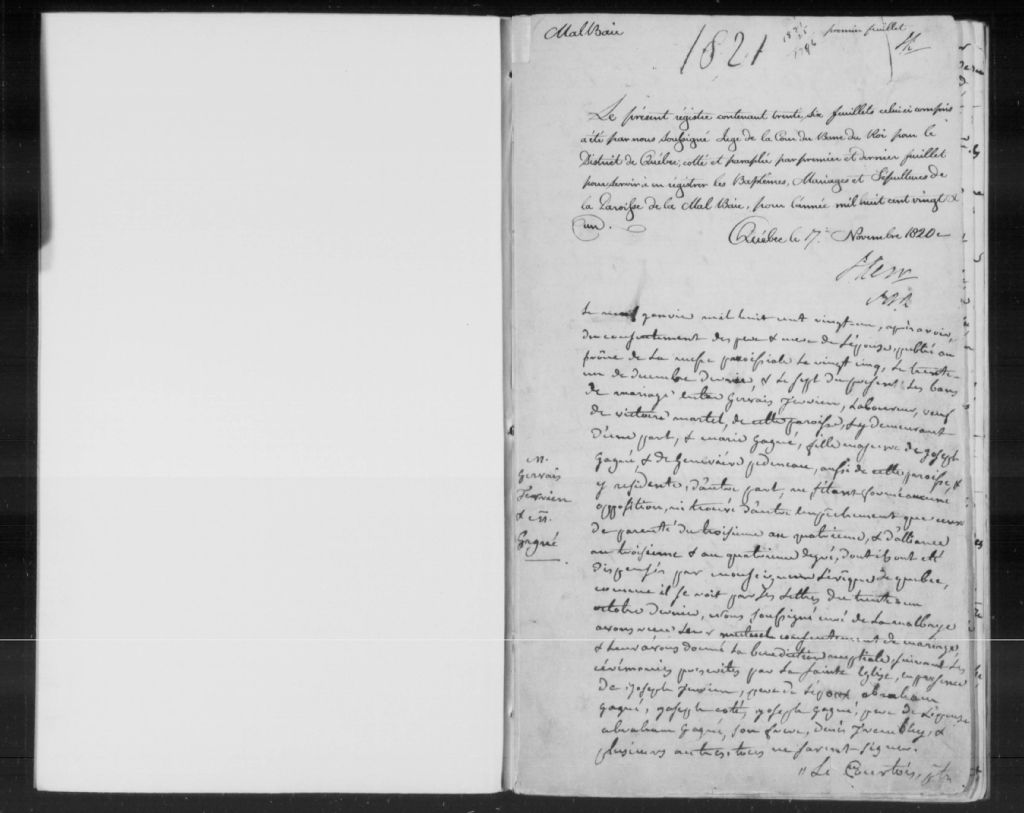 MalBaie
1821
premier feuillet
Le présent régistre contenant trente six feuillets celui ci compris
a été par nous Soussigné Juge de la Cour du Banc du Roi pour le
District de Québec, cotté et paraphé par premier et dernier feuillet
pour servir à en régistrer les Baptêmes, Mariages et Sépultures de
la Paroisse de la Mal Baie, pour l'année mil huit cent vingt &
un.
Québec le 17. Novembre 1820
Le neuf janvier mil huit cent vingt un, après avoir,
du consentement des pere & mere de L'épouse, publié au
prône de La messe paroissiale Le vingt cinq, Le trente
un de decembre dernier, & Le sept du présent Les bans
de mariage entre Gervais Terrien, Laboureur, veuf
de victoire martel, de cette paroisse, & y demeurant
d'une part, & marie Gagné, fille majeure de joseph
Gagné & de Genevieve, aussi de cette paroisse, &
y résidente, d'autre part, ne s'étant formé aucune
opposition, ni trouvé d'autre empêchement que ceux
de parenté du troisieme au quatrieme, & d'alliance
au troisieme & au quatrieme degré, dont ils ont été
dispensés par monseigneur L'évêque de quebec,
comme il se voit par Ses Lettres du trente un
octobre dernier, Nous Soussigné curé de La malbaye
avons reçu Leur mutuel consentement de mariage
& Leur avons donné La benediction nuptiale suivant Les
cérémonies prescrites par La Sainte Eglise, en presence
de joseph Terrien, pere de L'époux abraham
Gagné, joseph coté, joseph Gagné, pere de L'épouse
abraham Gagné, son frere, denis Trembley, &
plusieurs autres, tous ne savent signer.
Le Courtois, ptre
M.
Gervais
Terrien
& M.
Gagné